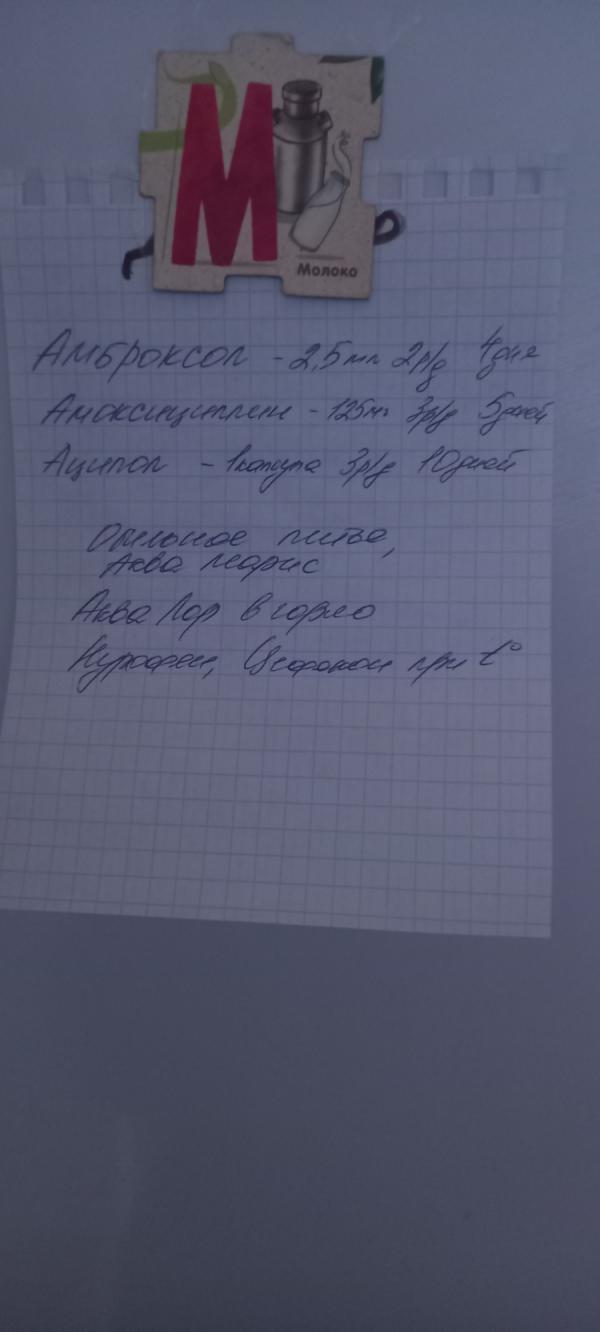 М
Молоко
Амброксол - 2,5мл 2р/д 4дня
Амоксициллин - 125мг 3р/д 5дней
Аципол - 1капсула 3р/д 10дней
Обильное питье,
Аква Марис
Аква Лор в горло
Нурофен, Цефекон при t°